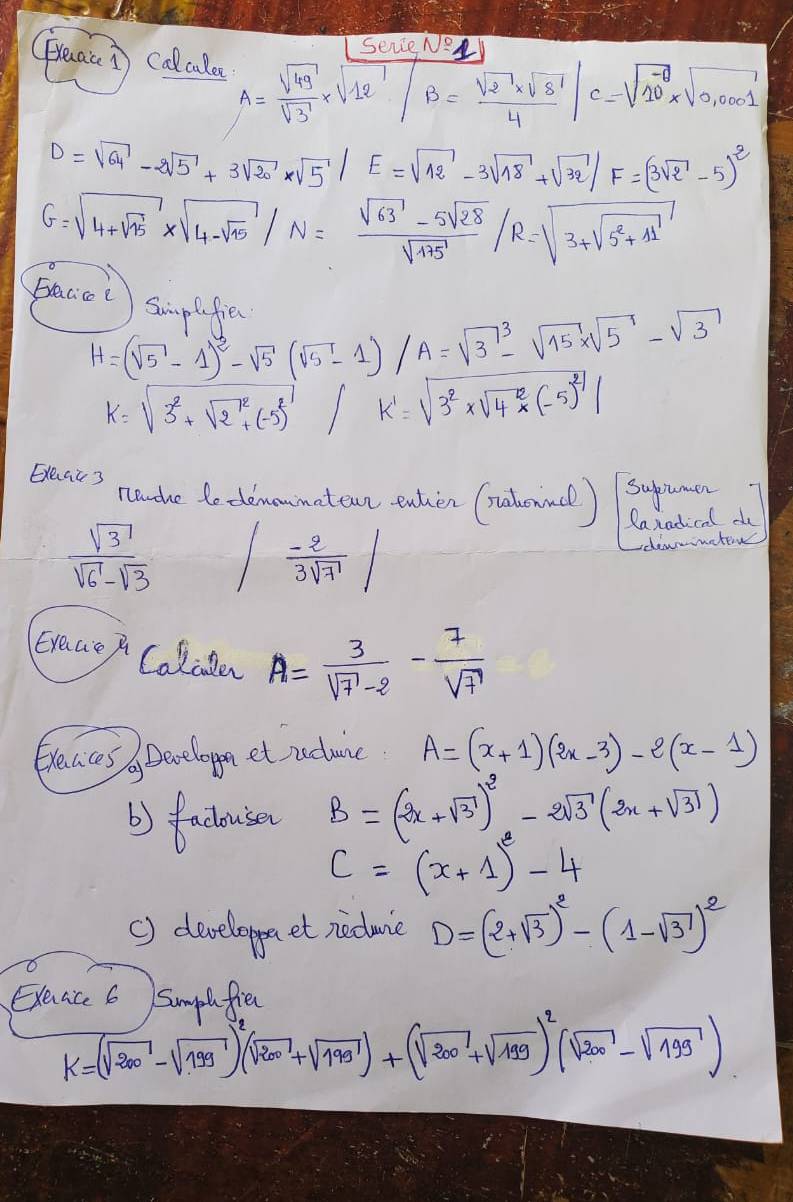 Serie N° 1
Exercice 1) Calculer:
A = √49/√3 × √12 / B = (√2 × √8)/4 / C = √10⁻⁸ × √0,0001
D = √64 - 2√5 + 3√20 × √5 / E = √12 - 3√18 + √32 / F = (3√2 - 5)²
G = √(4+√15) × √(4-√15) / N = (√63 - 5√28)/√175 / R = √(3+√(5²+11))
Exercice 2 Simplifier:
H = (√5 - 1)² - √5 (√5 - 1) / A = √3³ - √15 × √5 - √3
K = √(3² + √2² + (-5)²) / K' = √(3² × √4² × (-5)²) /
Exercic 3 rendre le dénominateur entier (rationnel) [Suprimer
la radical de
dénuminateur]
√3/(√6 - √3) / -2/(3√7) /
Exercice 4 Calculer A = 3/(√7 - 2) - 7/√7
Exercice 5 a) Developper et reduire : A = (x+1)(2x-3) - 2(x-1)
b) factoriser B = (2x+√3)² - 2√3 (2x+√3)
C = (x+1)² - 4
c) developpa et rèduire D = (2+√3)² - (1-√3)²
Exercice 6 Simplifier
K = (√200 - √199)² (√200 + √199) + (√200 + √199)² (√200 - √199)